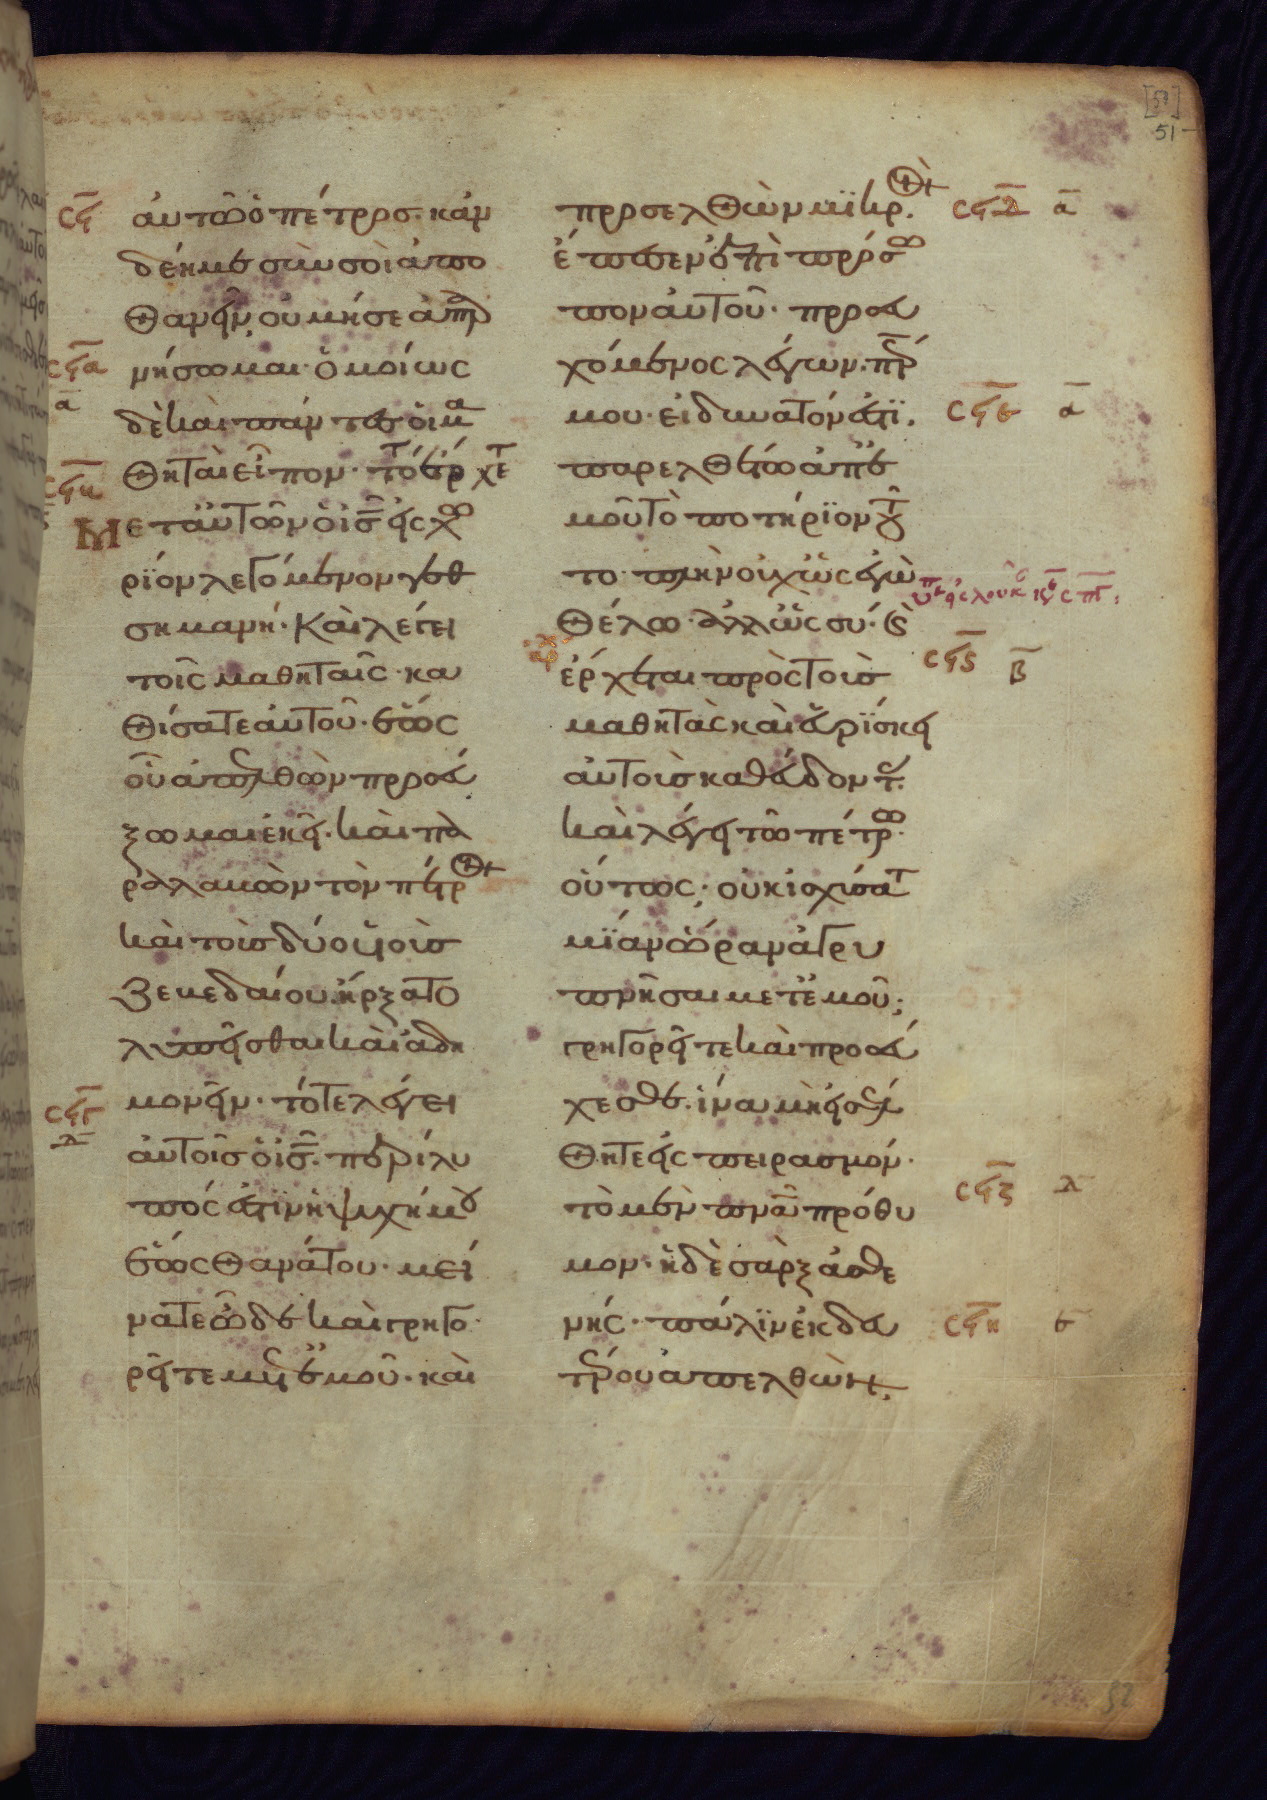 αὐτῶ ὁ πέτρος· κἀν
δέη με σὺν σοὶ ἀπο
θανεῖν, οὐ μή σε ἀπαρ
νήσωμαι· ὁμοίως
δὲ καὶ πάντες οἱ μα
θηταὶ εἶπον· τότε ἔρχετ
Μετ αὐτῶν ὁ ις εἰς χω
ρίον λεγόμενον γεθ
σημανή· Καὶ λέγει
τοῖς μαθηταῖς· κα
θίσατε αὐτοῦ· ἕως
οὗ ἀπελθὼν προσεύ
ξωμαι ἐκεῖ· καὶ πα
ραλαβὼν τὸν πέτρ
καὶ τοὺς δύο υἱοὺς
Ζεβεδαίου ἤρξατο
λυπεῖσθαι καὶ ἀδη
μονεῖν· τότε λέγει
αὐτοῖς ὁ ις· περίλυ
πός ἐστιν ἡ ψυχή μου
ἕως θανάτου· μεί
νατε ὧδε καὶ γρηγο
ρεῖτε μετ ἐμοῦ· καὶ
προσελθὼν μϊκρ·
ἔπεσεν ἐπὶ πρόσω
πον αὐτοῦ· προσευ
χόμενος λέγων· περ
μου· εἰ δυνατόν ἐστϊ,
παρελθέτω ἀπ ἐ
μοῦ τὸ ποτήρϊον τοῦ
το· πλὴν οὐχ ὡς ἐγὼ
θέλω· ἀλλ ὡς σύ· καὶ
ἔρχεται πρὸς τοὺς
μαθητὰς καὶ εὑρϊσκει
αὐτοὺς καθεύδοντ
καὶ λέγει τῶ πέτρω·
οὕτως; οὐκ ἰσχύσατ
μϊαν ὥραν γρη
γορῆσαι μετ ἐμοῦ;
γρηγορεῖτε καὶ προσεύ
χεσθε· ἵνα μὴ εἰσέλ
θητε εἰς πειρασμόν·
τὸ μὲν πνα πρόθυ
μον· ἡ δὲ σὰρξ ἀσθε
νής· πάλϊν ἐκ δευ
τέρου ἀπελθὼν
ϲϟ
ϲϟα
α
ϲϟβ
ϲϟγ
δ
ϲϟδ α
ϲϟε α
ϲϟϛ β
ϲϟζ δ
ϲϟη ϛ
51
52